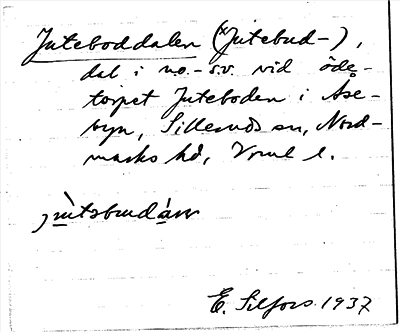 Juteboddalen (*Jutebud-),
dal i no.-s.v. vid öde-
torpet Juteboden i Åse-
byn, Silleruds sn, Nord-
marks hd, Vrml l.
E. Silfors 1937